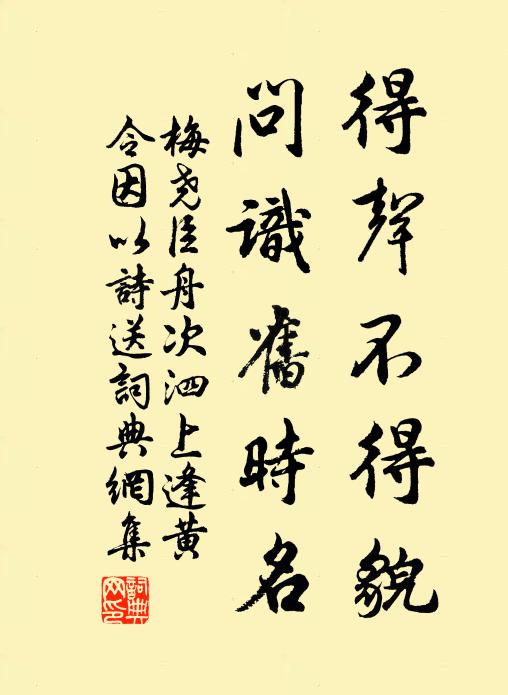 得聲不得貌
問識舊時名
梅堯臣舟次泗上逢黃
令因以詩送詞典網集
詞典
网印